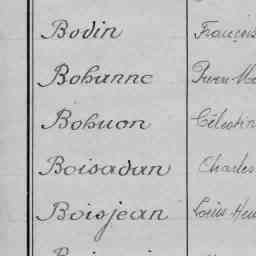 Bodin François
Bohanne Pierre-Ma
Bohuon Célestin
Boisadan Charles
Boisjean Louis Hen